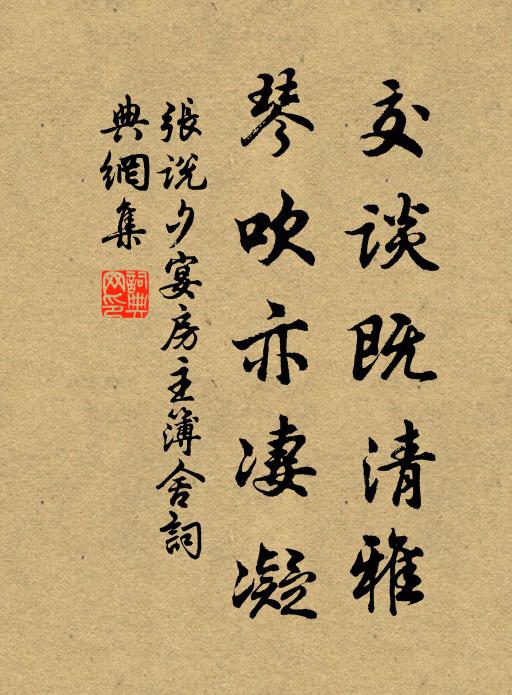 交谈既清雅
琴吹亦凄凝
張说夕宴房主簿舍詞
典網集
詞典网印